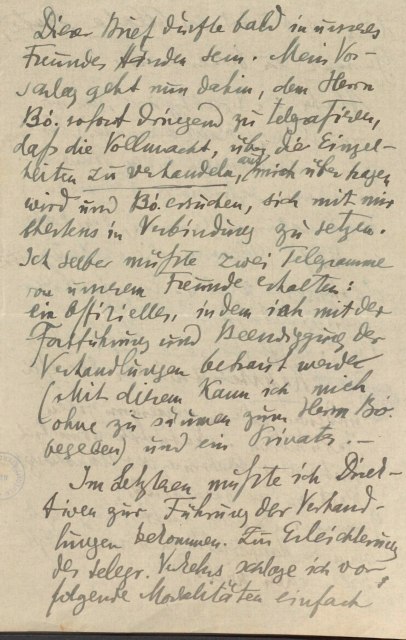 Dieser Brief dürfte bald in unseres
Freundes Händen sein. Mein Vor-
schlag geht nun dahin, dem Herrn
Bö. sofort dringend zu telegrafieren,
daß die Vollmacht, über die Einzel-
heiten zu verhandeln, auf mich übertragen
wird und Bö. ersuchen, sich mit mir
in Verbindung zu setzen.
Ich selber müßte zwei Telegramme
von unserem Freunde erhalten:
ein offizielles, in dem ich mit der
Fortführung und Beendigung der
Verhandlungen betraut werde
(Mit diesem kann ich mich
ohne zu säumen zum Herrn Bö.
begeben) und ein Privates. —
Im Letzteren müßte ich Direk-
tiven zur Führung der Verhand-
lungen bekommen. Zur Erleichterung
des telegr. Verkehrs schlage ich vor
folgende Modalitäten einfach